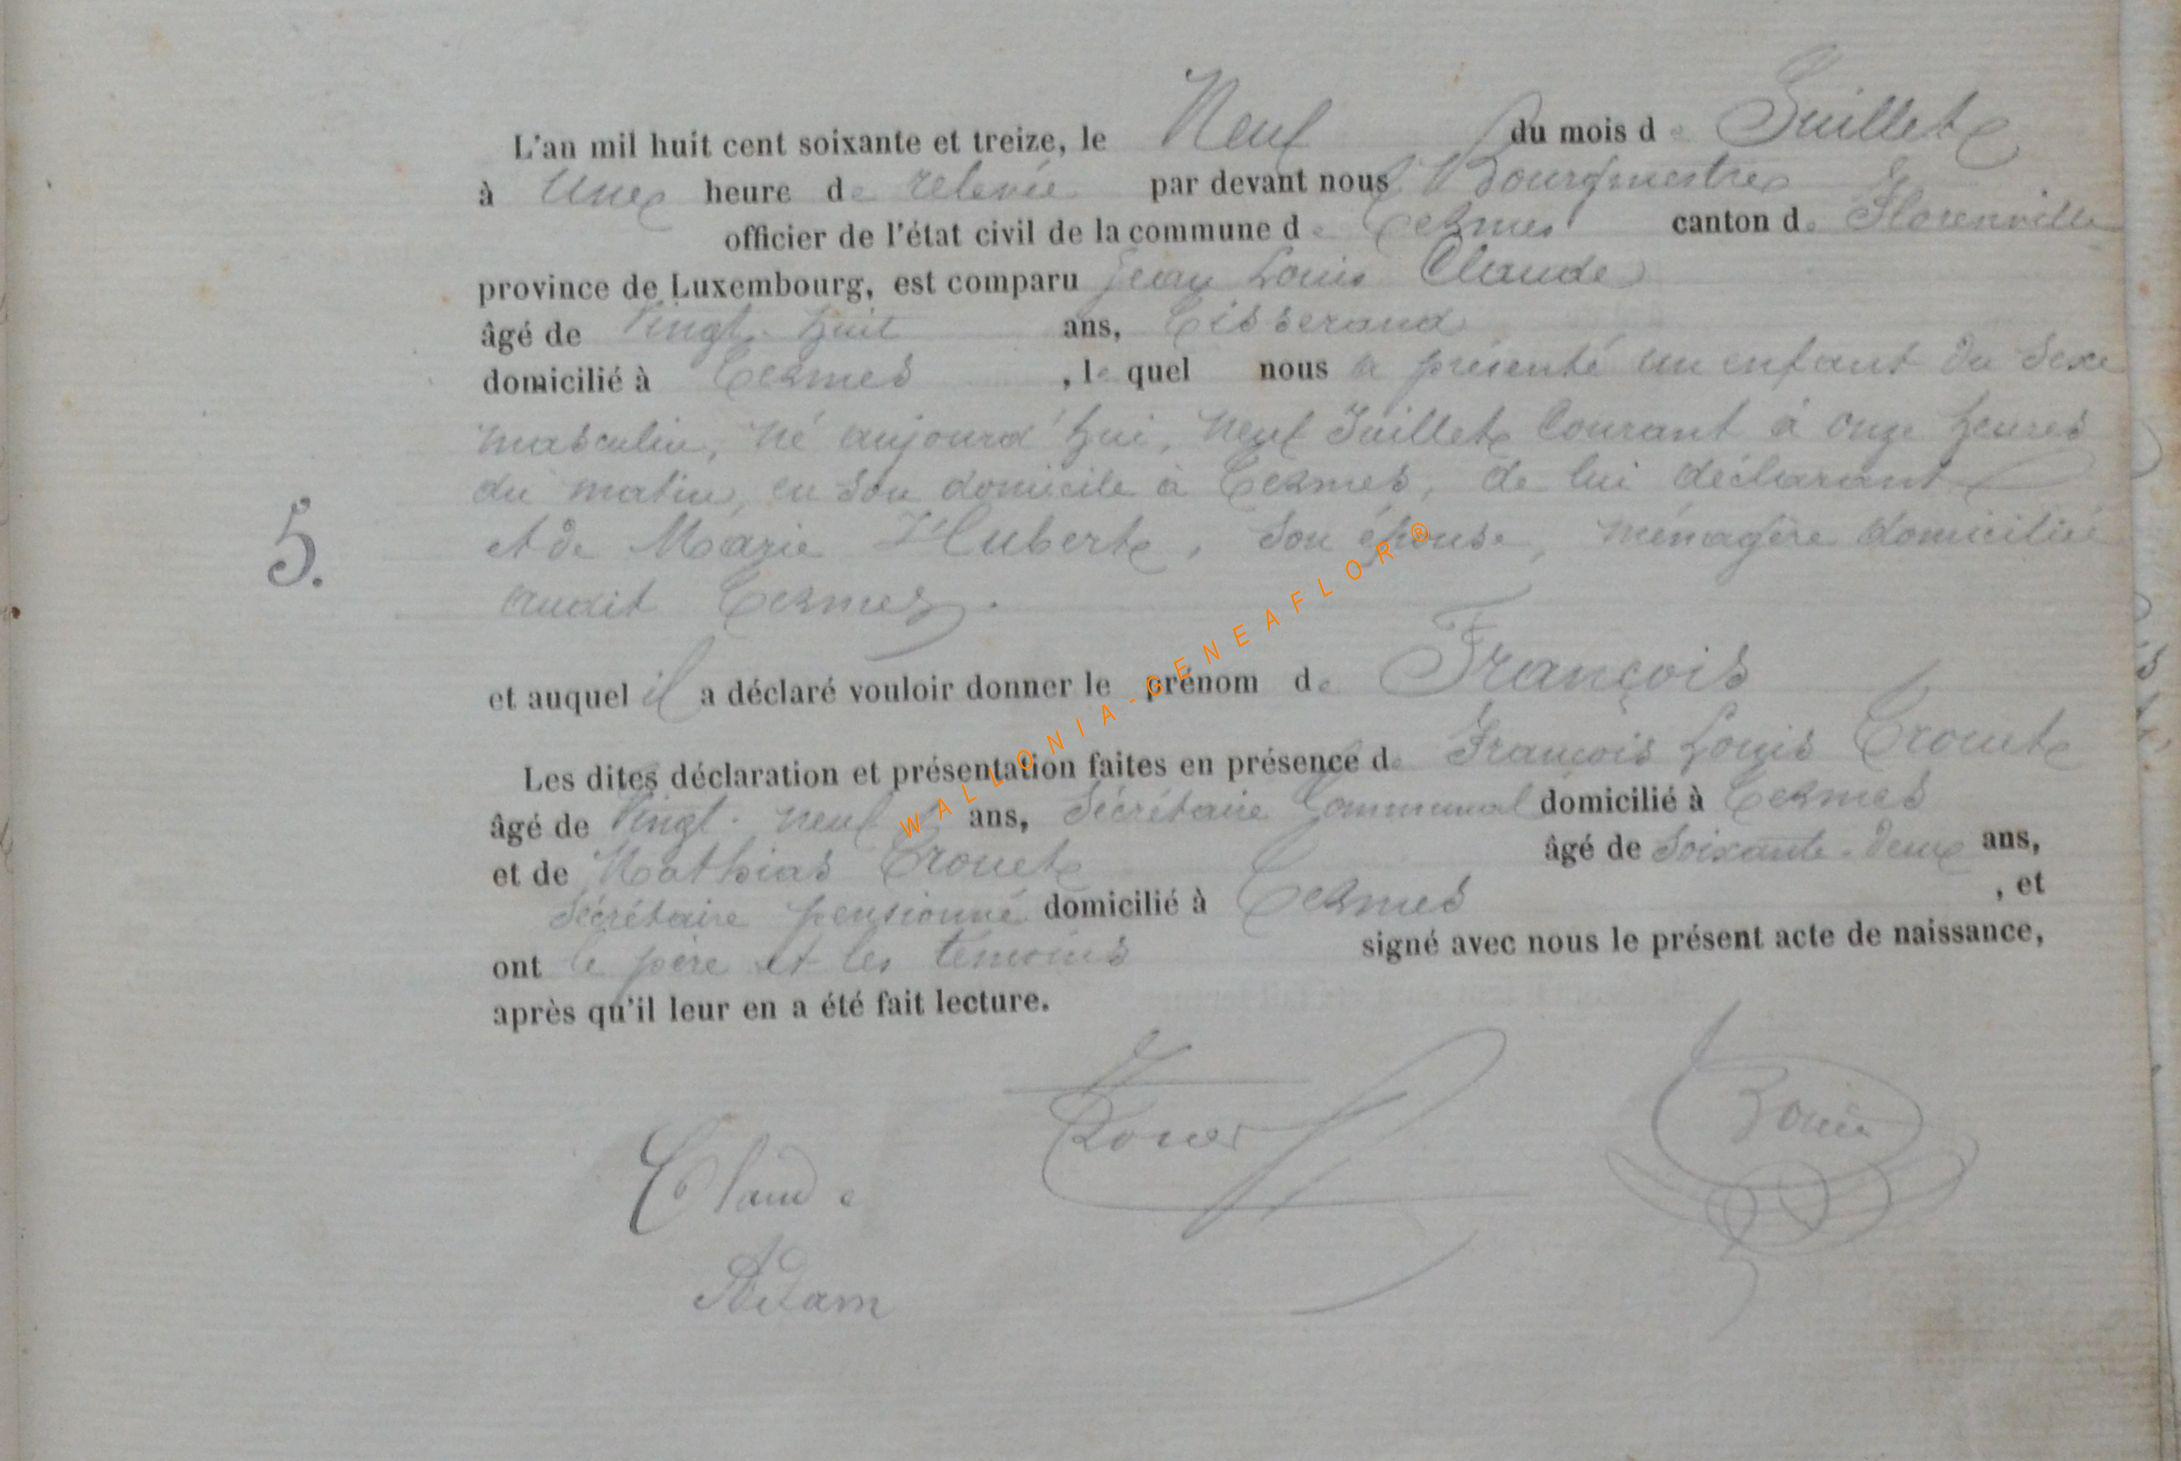 L'an mil huit cent soixante et treize, le Neuf du mois de Juillet
à Une heure de relevée par devant nous Bourgmestre
officier de l'état civil de la commune de Termes canton de Florenville
province de Luxembourg, est comparu Jean Louis Claude
âgé de Vingt-huit ans, Tisserand
domicilié à Termes, le quel nous a présenté un enfant du sexe
masculin, né aujourd'hui, neuf Juillet Courant à onze heures
du matin, en son domicile à Termes, de lui déclarant
5. et de Marie Hubert, son épouse, ménagère domiciliée
audit Termes.
et auquel il a déclaré vouloir donner le prénom de François
Les dites déclaration et présentation faites en présence de François Louis Trouet
âgé de Vingt-neuf ans, Sécrétaire Communal domicilié à Termes
et de Mathias Trouet âgé de Soixante-deux ans,
Sécrétaire pensionné domicilié à Termes, et
ont le père et les témoins signé avec nous le présent acte de naissance,
après qu'il leur en a été fait lecture.
Claude
Adam
WALLONIA-GENEAFLOR®